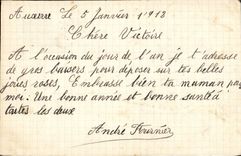 Auxerre Le 5 Janvier 1913
Chère Victoire
A l'occasion du jour de l'an je t'adresse
de gros baisers pour déposer sur tes belles
joues roses, Embrasse bien ta maman pour
moi. Une bonne année et bonne santé à
toutes les deux
André Fournier